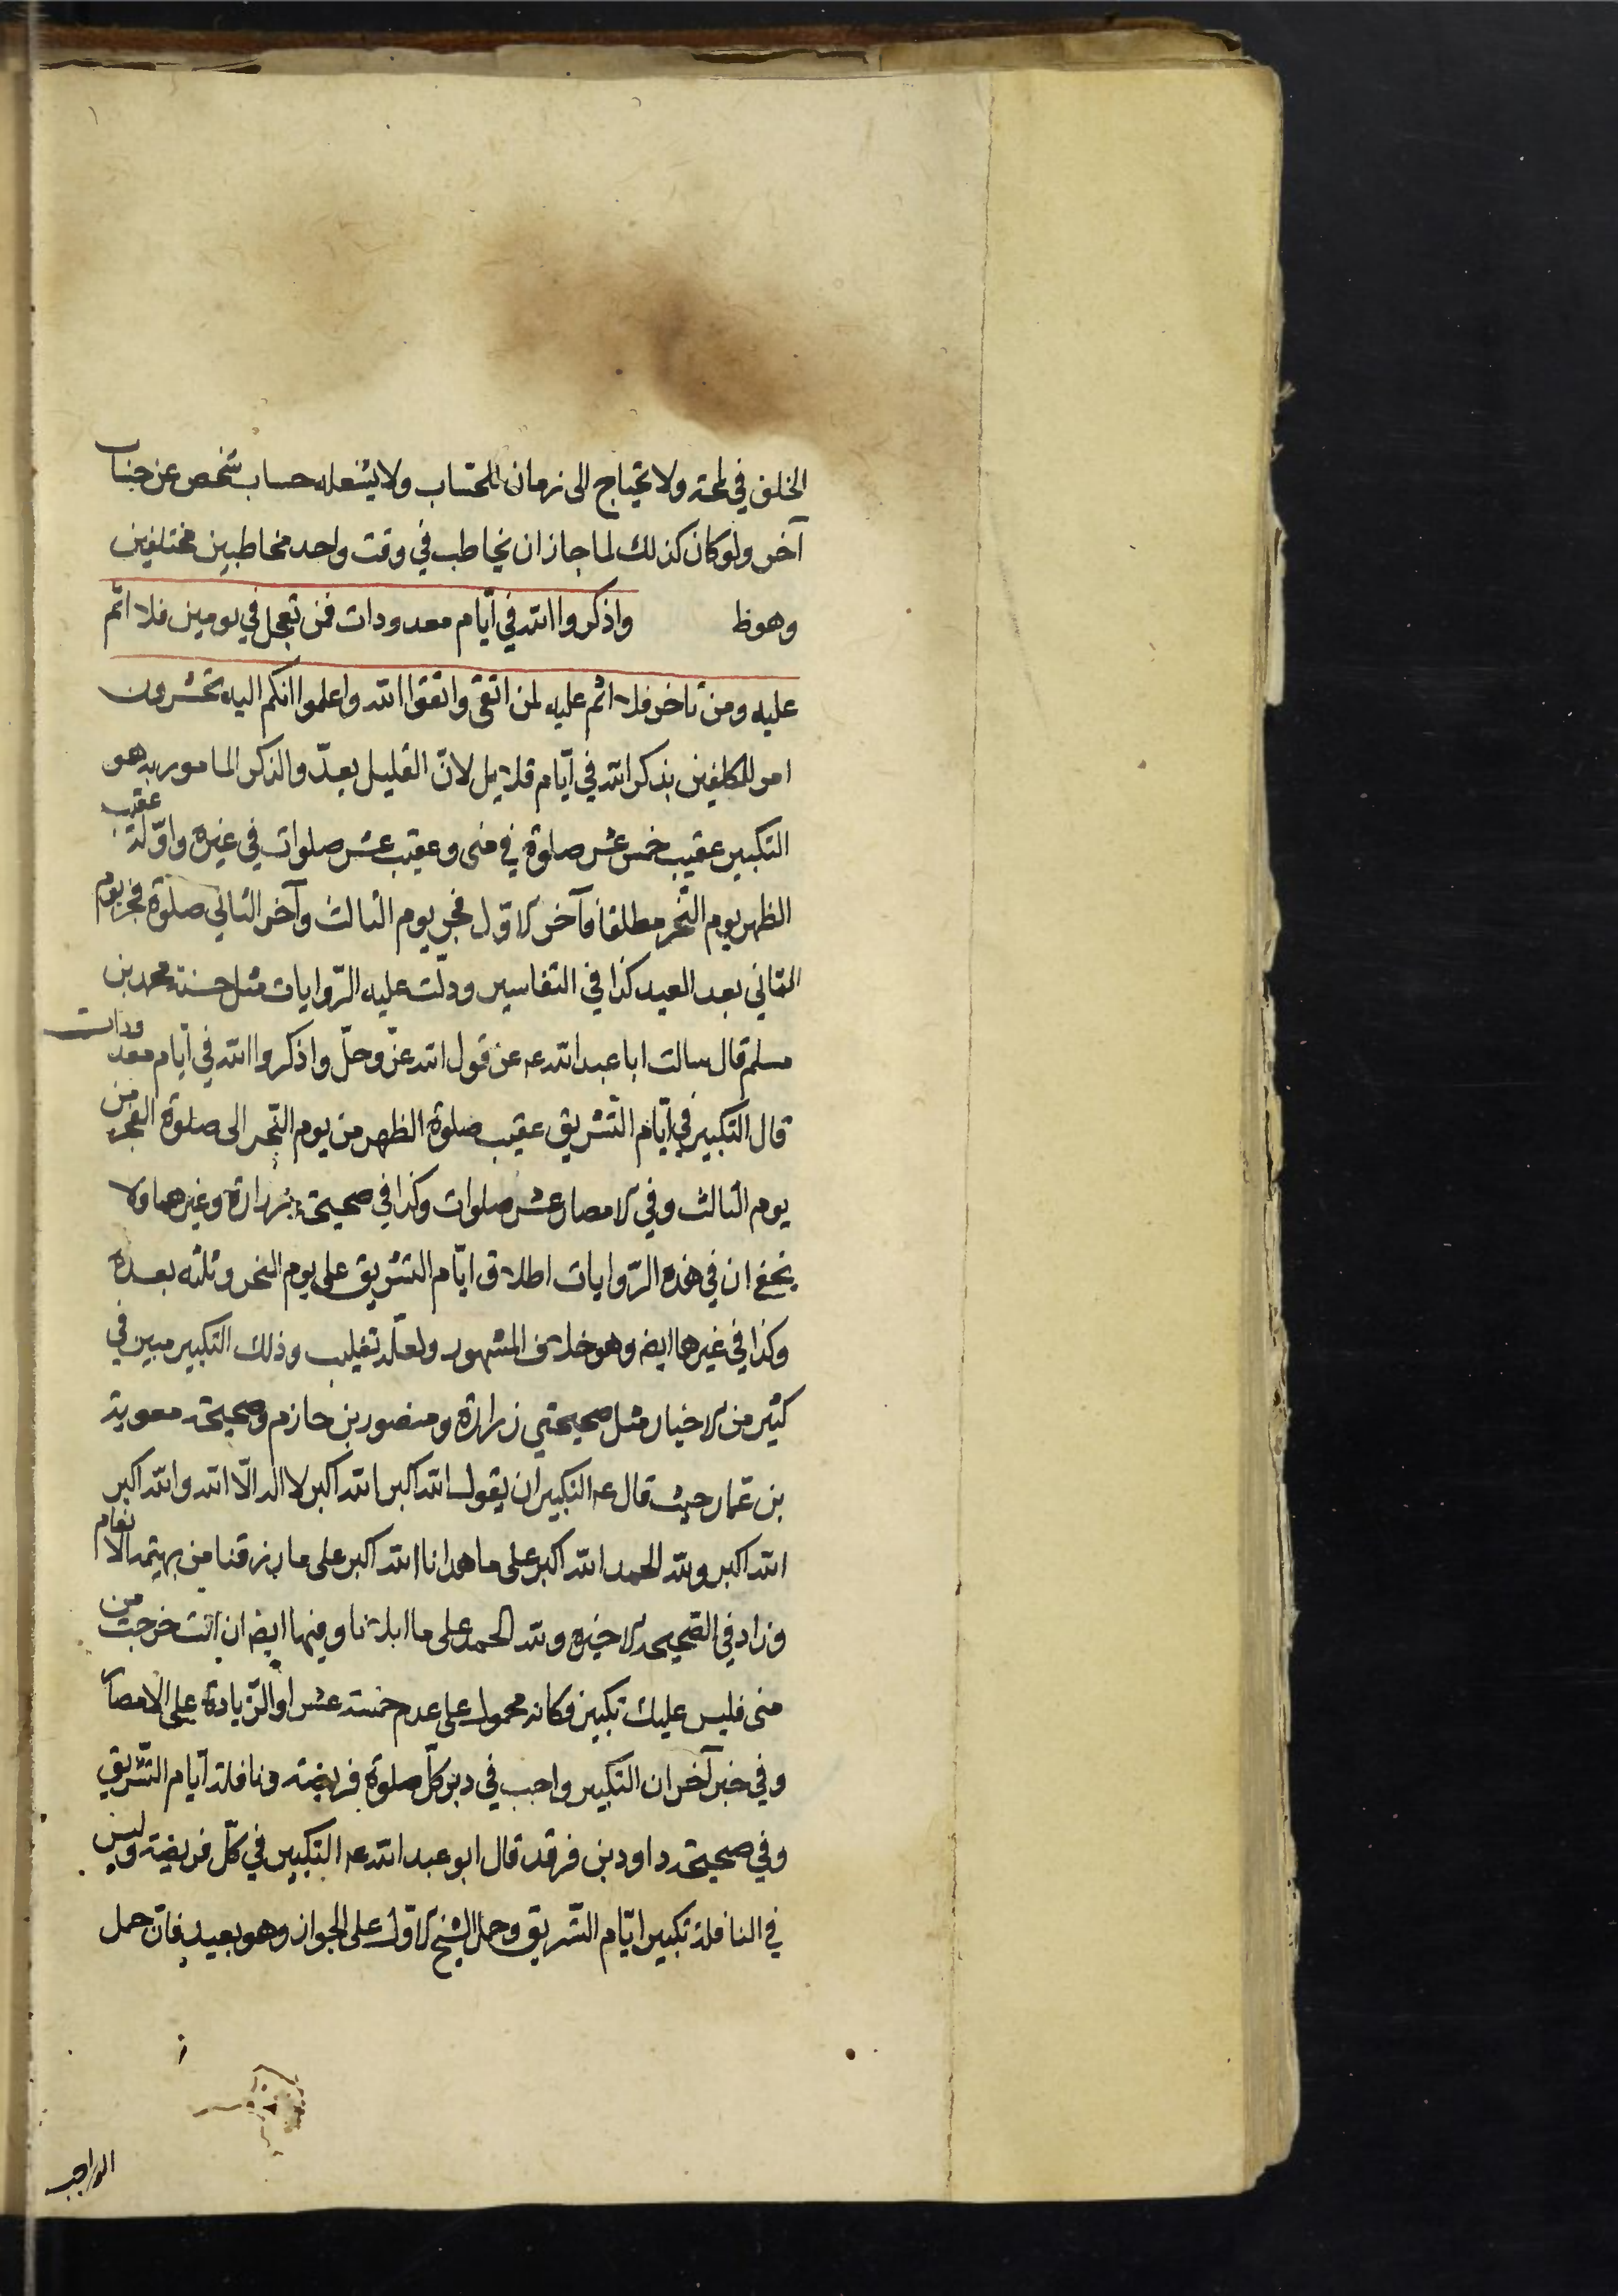 الخلق في لمحة ولا يحتاج الى زمان للحساب ولا يشغله حساب شخص عن حساب
آخر ولو كان كذلك لما جاز ان يخاطب في وقت واحد مخاطبين مختلفين
وهو ظ واذكروا الله في أيّام معدودات فمن تعجل في يومين فلا اثم
عليه ومن تأخر فلا اثم عليه لمن اتقى واتقوا الله واعلموا انكم اليه تحشرون
امر للمكلفين بذكر الله في أيّام قلايل لانّ القليل يعدّ والذكر المامور به هو
التكبير عقيب خمس عشر صلوة في منى وعقيب عشر صلوات في غيره واوّله عقيب
الظهر يوم النّحر مطلقا وآخر الاوّل فجر يوم الثالث وآخر الثاني صلوة فجر يوم
الثاني بعد العيد كذا في التفاسير ودلّت عليه الرّوايات مثل حسنة محمد بن
مسلم قال سالت ابا عبد الله عه عن قول الله عزّ وجلّ واذكروا الله في أيّام معدودات
قال التكبير في ايّام التّشريق عقيب صلوة الظهر من يوم النّحر الى صلوة الفجر من
يوم الثالث وفي الامصار عشر صلوات وكذا في صحيحة زرارة وغيرهما ولا
يخفى ان في هذه الرّوايات اطلاق ايّام التشريق على يوم النحر وثلثه بعده
وكذا في غيرها ايضه وهو خلاف المشهور ولعلّه تغليب وذلك التكبير مبين في
كثير من الاخبار مثل صحيحتي زرارة ومنصور بن حازم وصحيحة معوية
بن عمّار حيث قال عه التكبير ان يقول الله اكبر الله اكبر لا اله الّا الله والله اكبر
الله اكبر ولله الحمد الله اكبر على ما هدانا الله اكبر على ما رزقنا من بهيمة الانعام
وزاد في الصّحيحه الاخيره ولله الحمد على ما ابلانا وفيها ايضه ان انت خرجت من
منى فليس عليك تكبير فكانه محمول على عدم خمسة عشر او الزّيادة على الامصار
وفي خبر آخر ان التكبير واجب في دبر كلّ صلوة فريضه ونافلة ايّام التّشريق
وفي صحيحة داود بن فرقد قال ابو عبد الله عه التكبير في كلّ فريضة وليس
في النافلة تكبير ايّام التّشريق وحمل الشيخ الاوّل على الجواز وهو بعيد فان حمل
الواجب